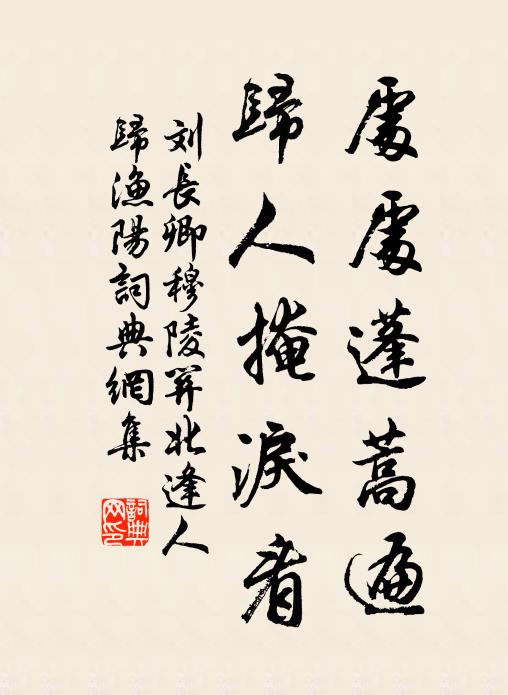 處處蓬蒿遍
歸人掩淚看
刘長卿穆陵関北逢人
歸漁陽詞典網集
詞典网印